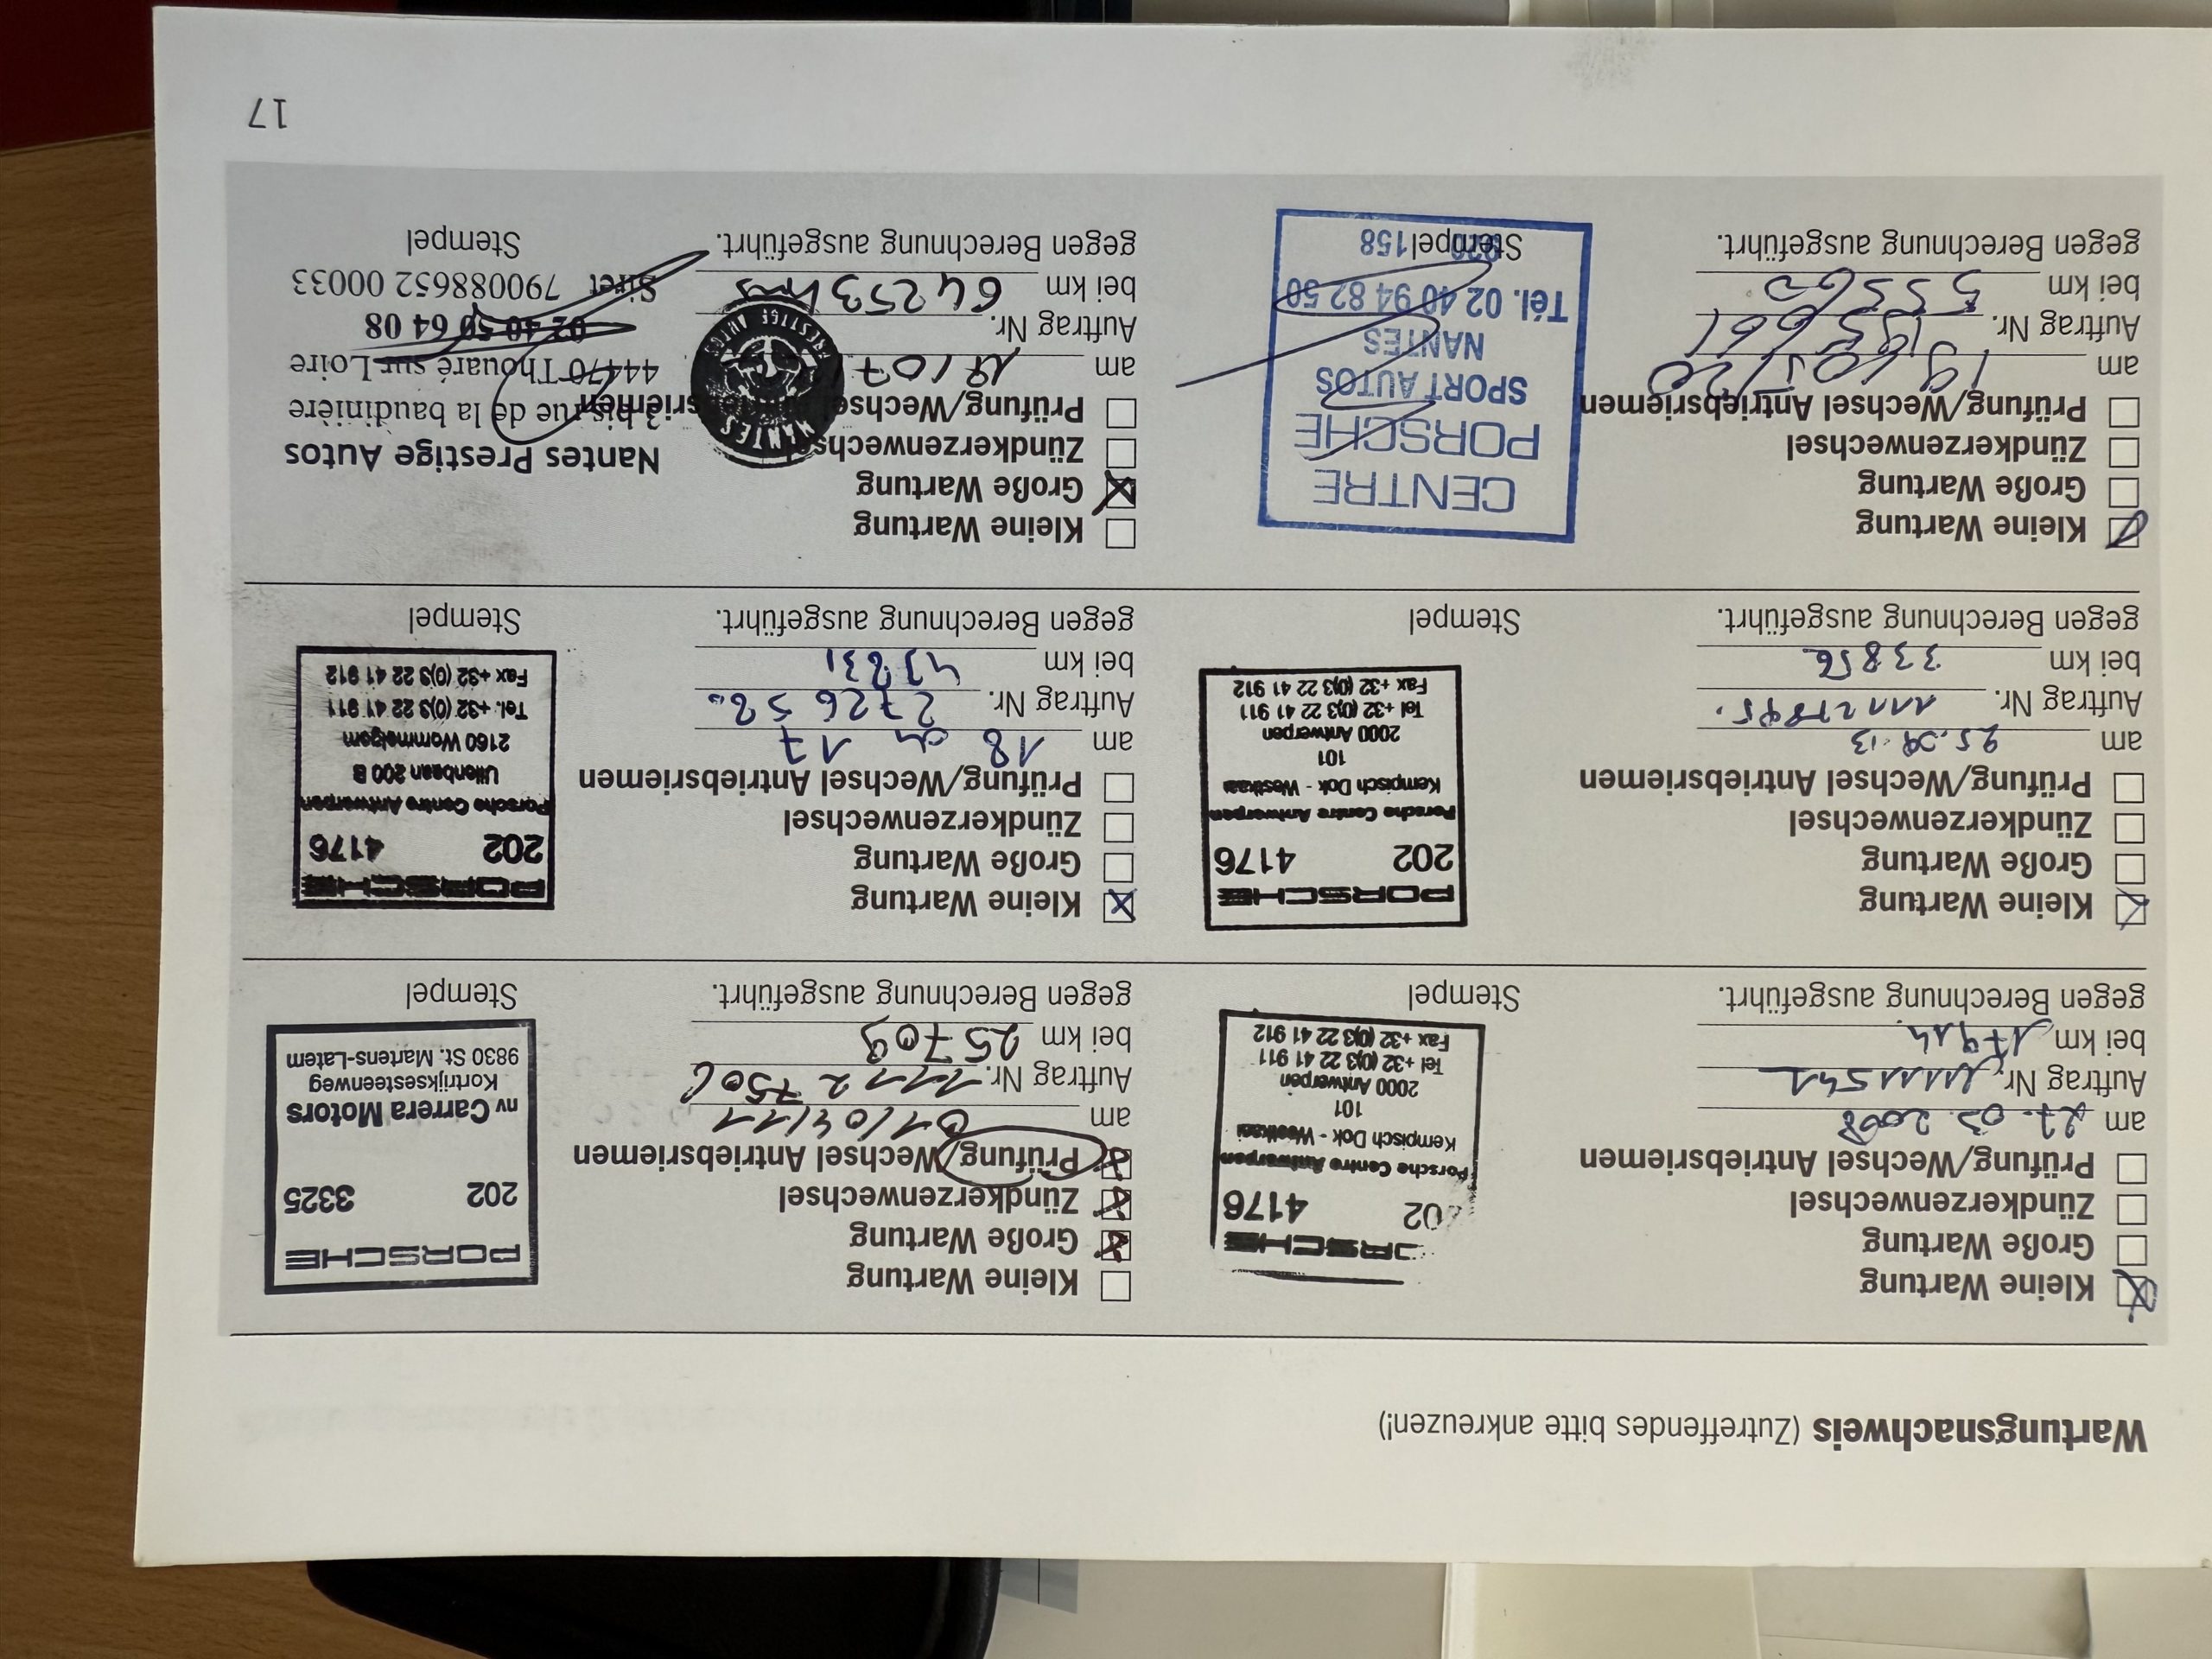 Wartungsnachweis (Zutreffendes bitte ankreuzen!)
Kleine Wartung
Große Wartung
Zündkerzenwechsel
Prüfung/Wechsel Antriebsriemen
am 27.03.2008
Auftrag Nr. 11111541
bei km 17914
gegen Berechnung ausgeführt.
4176
Porsche Centre Antwerpen
Kempisch Dok - Westkaai
101
2000 Antwerpen
Tel +32 (0)3 22 41 911
Fax +32 (0)3 22 41 912
Stempel
Kleine Wartung
Große Wartung
Zündkerzenwechsel
Prüfung/Wechsel Antriebsriemen
am 01/04/11
Auftrag Nr. 1112750
bei km 25709
gegen Berechnung ausgeführt.
PORSCHE
202 3325
nv Carrera Motors
Kortrijksesteenweg
9830 St. Martens-Latem
Stempel
Kleine Wartung
Große Wartung
Zündkerzenwechsel
Prüfung/Wechsel Antriebsriemen
am
Auftrag Nr.
bei km 33856
gegen Berechnung ausgeführt.
PORSCHE
202 4176
Porsche Centre Antwerpen
Kempisch Dok - Westkaai
101
2000 Antwerpen
Tel +32 (0)3 22 41 911
Fax +32 (0)3 22 41 912
Stempel
Kleine Wartung
Große Wartung
Zündkerzenwechsel
Prüfung/Wechsel Antriebsriemen
am 18 04 17
Auftrag Nr.
bei km
gegen Berechnung ausgeführt.
PORSCHE
202 4176
Porsche Centre Antwerpen
Uilenbaan 200 B
2160 Wommelgem
Tel. +32 (0)3 22 41 911
Fax +32 (0)3 22 41 912
Stempel
Kleine Wartung
Große Wartung
Zündkerzenwechsel
Prüfung/Wechsel Antriebsriemen
am
Auftrag Nr.
bei km
gegen Berechnung ausgeführt.
CENTRE
PORSCHE
SPORT AUTOS
NANTES
Tél. 02 40 94 82 50
Stempel 158
Kleine Wartung
Große Wartung
Zündkerzenwechsel
Prüfung/Wechsel
am
Auftrag Nr.
bei km 64253 kms
gegen Berechnung ausgeführt.
NANTES
PRESTIGE AUTOS
Nantes Prestige Autos
3 bis rue de la baudinière
44470 Thouaré sur Loire
02 40 50 64 08
Siret 790088652 00033
Stempel
17